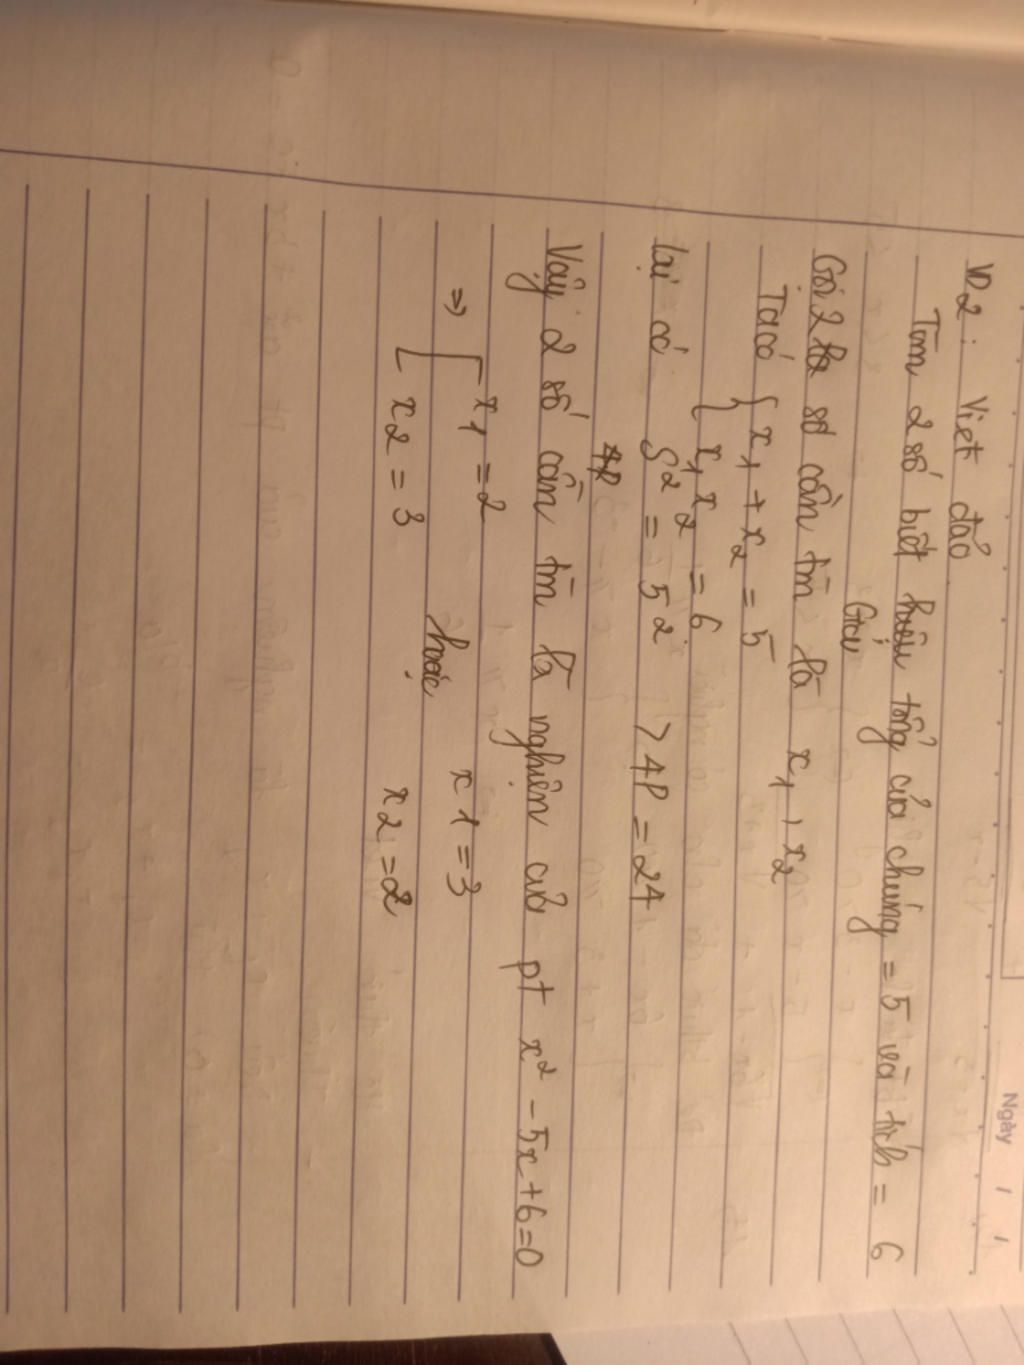 Ngày / /
VD2: Viet đảo
Tìm 2 số biết hiệu tổng của chúng = 5 và tích = 6
Giải
Gọi 2 số cần tìm là x1, x2
Ta có { x1 + x2 = 5
x1 x2 = 6
Lại có S² = 5² > 4P = 24
4P
Vậy 2 số cần tìm là nghiệm của pt x² - 5x + 6 = 0
⇒ [ x1 = 2 hoặc x1 = 3
x2 = 3 x2 = 2